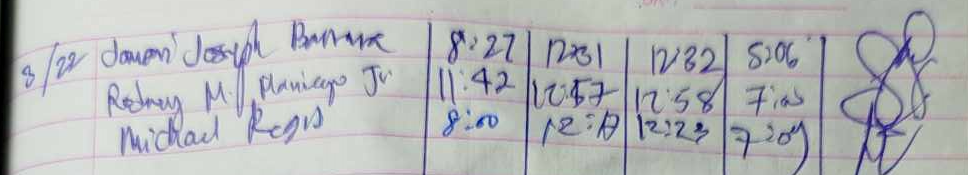 3/22 Joseph 8:27 12:31 12:32 5:06
Rodney M. Planicyo Jr 11:42 12:57 12:58
Michael Regis 8:00 12:17 12:23 7:09